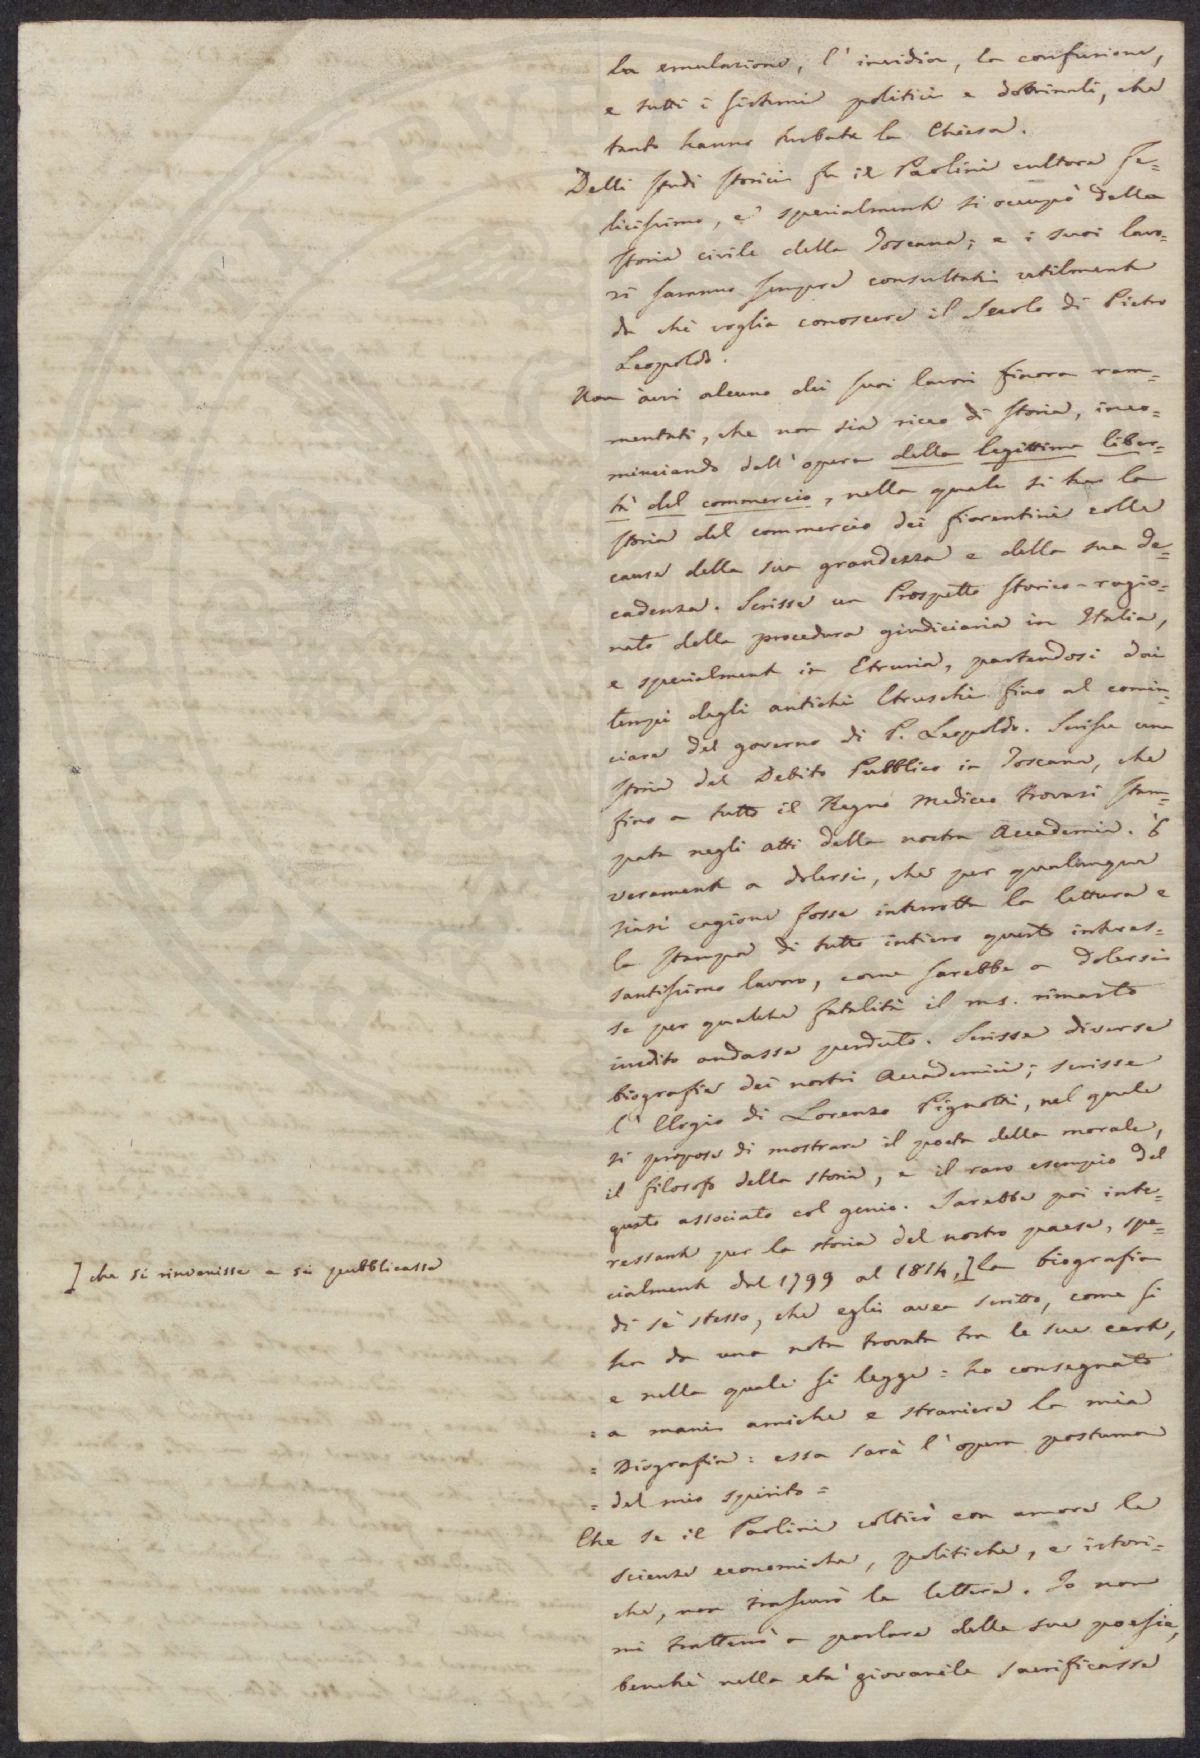 la emulazione, l'invidia, la confusione,
e tutti i sistemi politici e dottrinali, che
tanto hanno turbata la Chiesa.
Delli studi storici fu il Paolini cultore fe=
licissimo, e specialmente si occupò della
storia civile della Toscana; e i suoi lavo=
ri saranno sempre consultati utilmente
da chi voglia conoscere il Secolo di Pietro
Leopoldo.
Non àvvi alcuno dei suoi lavori finora ram=
mentati, che non sia ricco di storia, inco=
minciando dall'opera della legittima liber=
tà del commercio, nella quale si ha la
storia del commercio dei fiorentini colle
cause della sua grandezza e della sua de=
cadenza. Scrisse un Prospetto storico-ragio=
nato della procedura giudiciaria in Italia,
e specialmente in Etruria, partendosi dai
tempi degli antichi Etruschi fino al comin=
ciare del governo di P. Leopoldo. Scrisse una
storia del Debito Pubblico in Toscana, che
fino a tutto il Regno Mediceo trovasi stam=
pata negli atti della nostra Accademia. È
veramente a dolersi, che per qualunque
siasi cagione fosse interrotta la lettura e
la stampa di tutto intiero questo interes=
santissimo lavoro, come sarebbe a dolersi
se per qualche fatalità il ms. rimasto
inedito andasse perduto. Scrisse diverse
biografie dei nostri Accademici; scrisse
l'Elogio di Lorenzo Pignotti, nel quale
si propose di mostrare il poeta della morale,
il filosofo della storia, e il raro esempio del
gusto associato col genio. Sarebbe poi inte=
ressante per la storia del nostro paese, spe=
cialmente dal 1799 al 1814,] la biografia
] che si rinvenisse e si pubblicasse
di sè stesso, che egli avea scritto, come si
ha da una nota trovata tra le sue carte,
e nella quale si legge = ho consegnato
= a mani amiche e straniere la mia
= Biografia: essa sarà l'opera postuma
= del mio spirito =
Che se il Paolini coltivò con amore le
scienze economiche, politiche, e istori=
che, non trascurò le lettere. Io non
mi tratterrò a parlare delle sue poesie,
benchè nella età giovanile sacrificasse